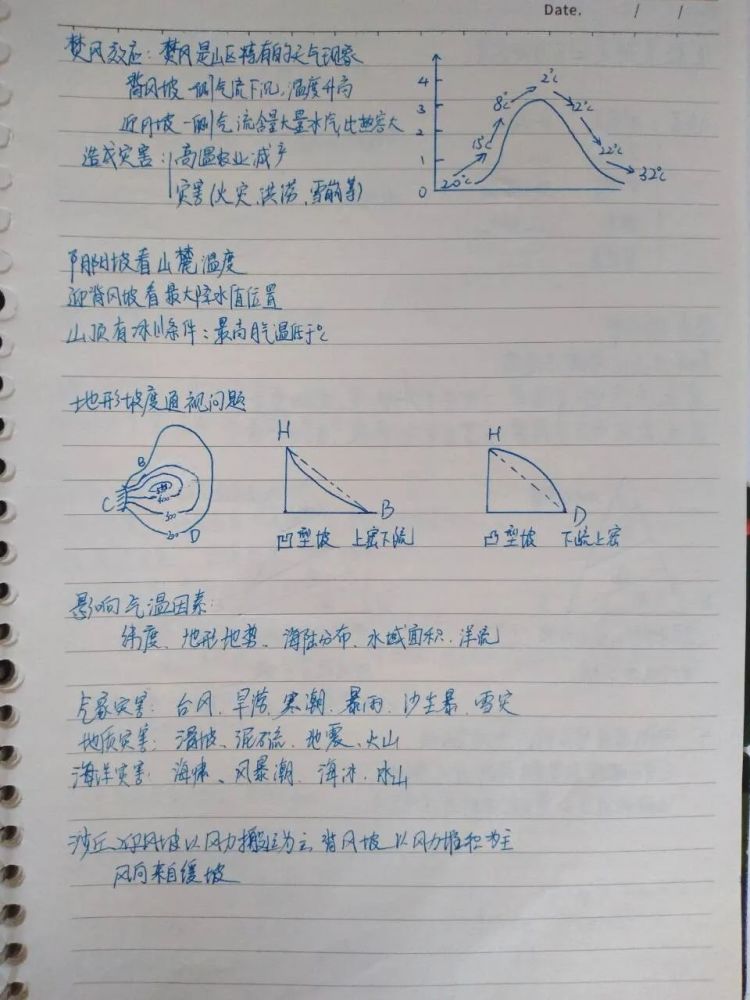 Date. / /
焚风效应：焚风是山区特有的天气现象
背风坡一侧气流下沉，温度升高
近风坡一侧气流含量大量水汽，比热容大
造成灾害：高温农业减产
灾害(火灾、洪涝、雪崩等)
4
3
2
1
0
20℃
15℃
8℃
2℃
12℃
22℃
32℃
阴阳坡看山麓温度
迎背风坡看最大降水值位置
山顶有冰川条件：最高月气温低于0℃
地形坡度通视问题
B
C
D
500
400
300
H
B
凹型坡 上密下疏
H
D
凸型坡 下疏上密
影响气温因素：
纬度、地形地势、海陆分布、水域面积、洋流
气象灾害：台风、旱涝、寒潮、暴雨、沙尘暴、雪灾
地质灾害：滑坡、泥石流、地震、火山
海洋灾害：海啸、风暴潮、海冰、冰山
沙丘迎风坡以风力搬运为主，背风坡以风力堆积为主
风向来自缓坡